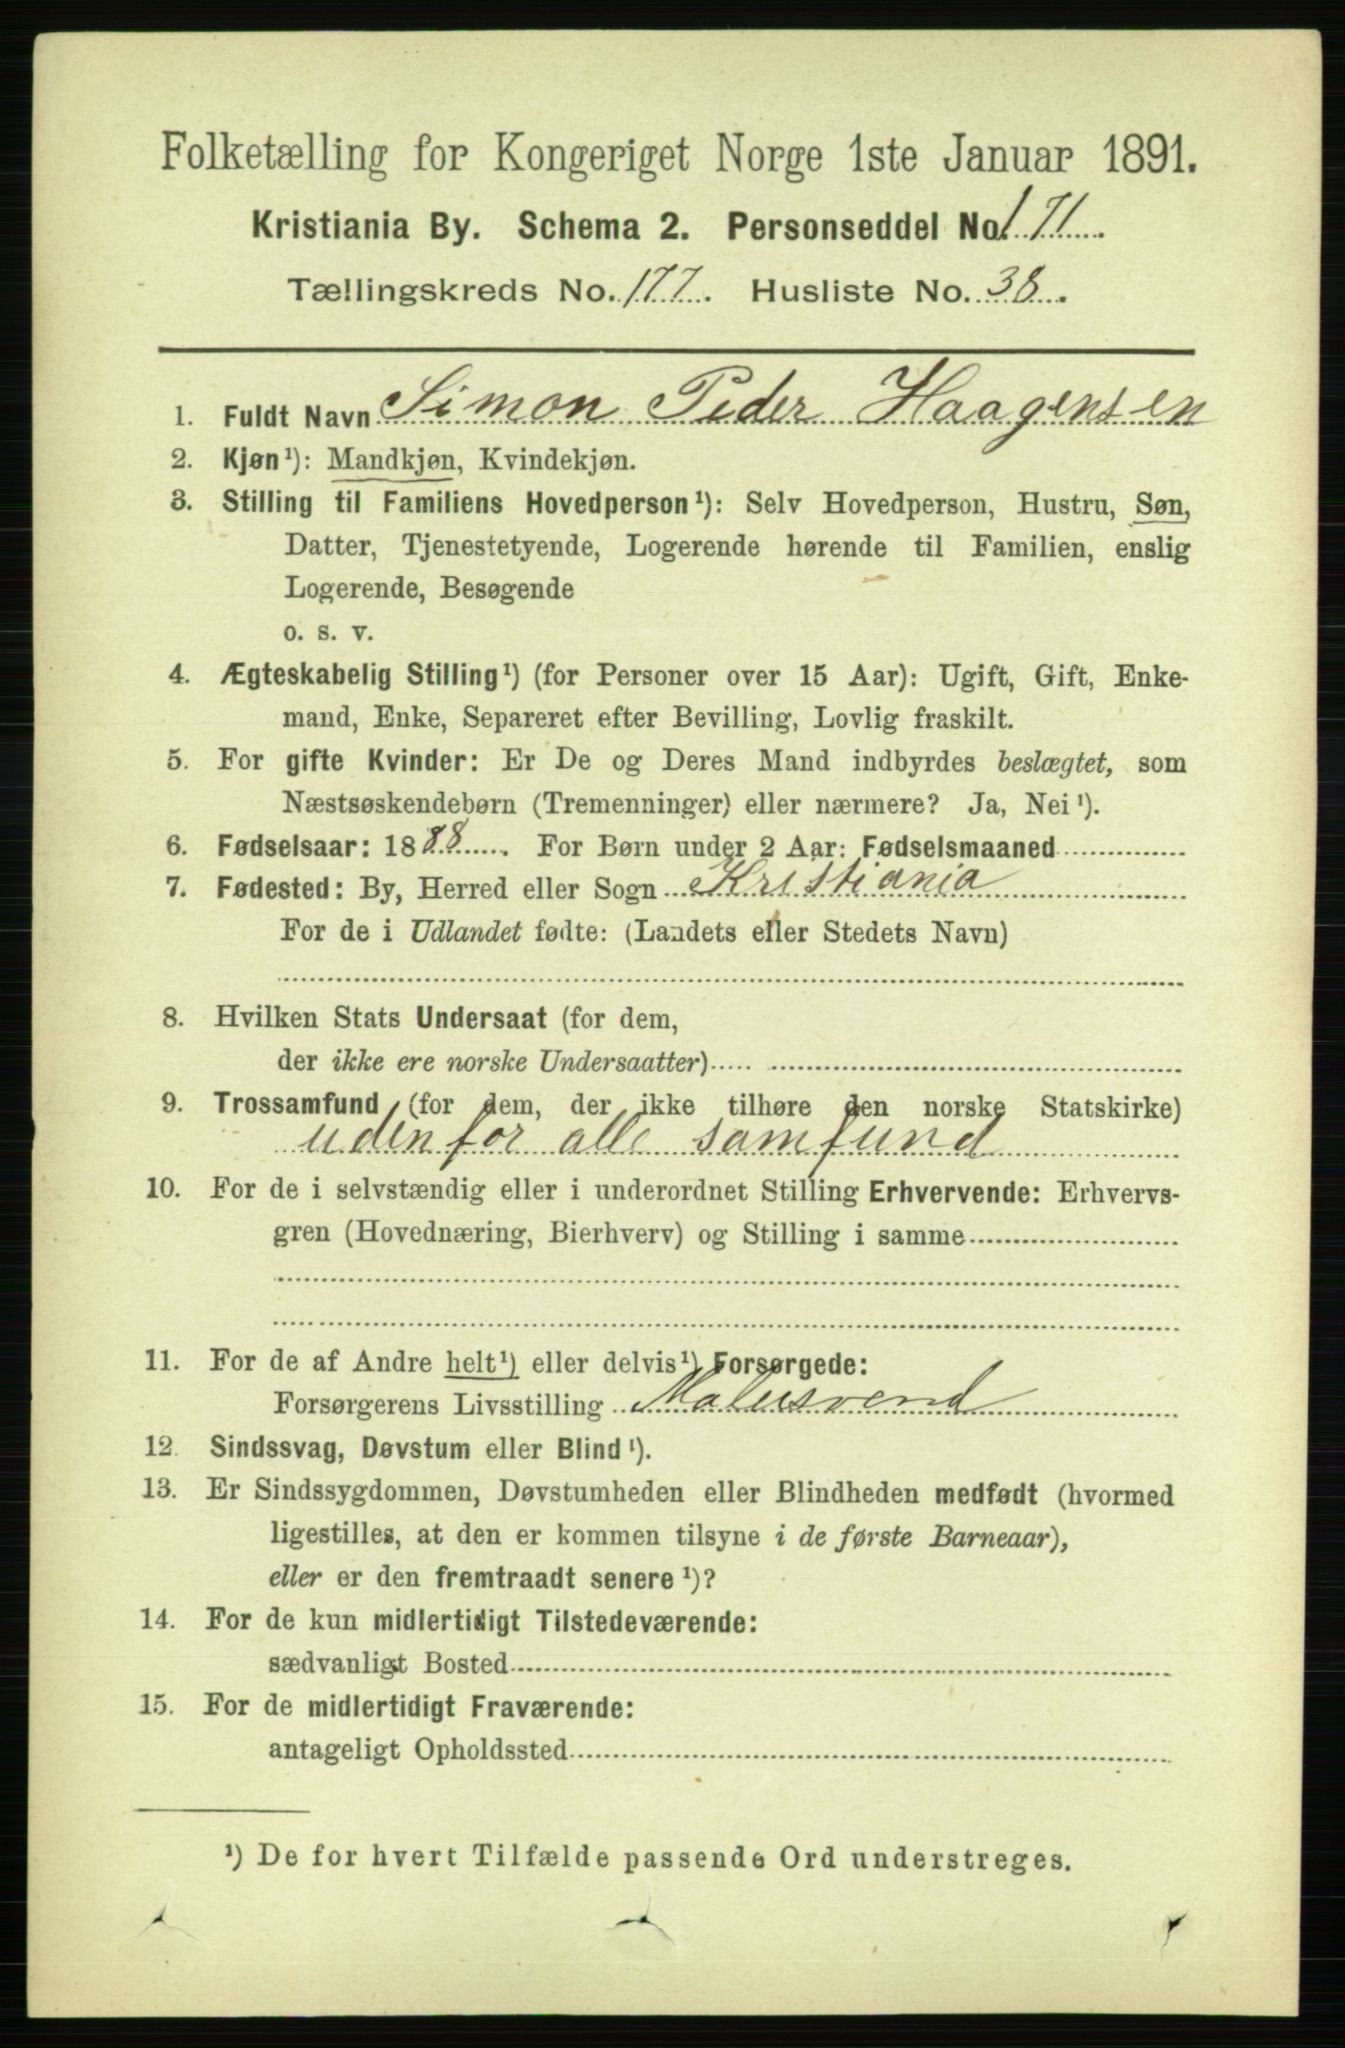 Folketælling for Kongeriget Norge 1ste Januar 1891.
Kristiania By. Schema 2. Personseddel No. 171.
Tællingskreds No. 177. Husliste No. 38.
1. Fuldt Navn Simon Peder Haagensen
2. Kjøn¹): Mandkjøn, Kvindekjøn.
3. Stilling til Familiens Hovedperson¹): Selv Hovedperson, Hustru, Søn,
Datter, Tjenestetyende, Logerende hørende til Familien, enslig
Logerende, Besøgende
o. s. v.
4. Ægteskabelig Stilling¹) (for Personer over 15 Aar): Ugift, Gift, Enke-
mand, Enke, Separeret efter Bevilling, Lovlig fraskilt.
5. For gifte Kvinder: Er De og Deres Mand indbyrdes beslægtet, som
Næstsøskendebørn (Tremenninger) eller nærmere? Ja, Nei¹).
6. Fødselsaar: 1888. For Børn under 2 Aar: Fødselsmaaned
7. Fødested: By, Herred eller Sogn Kristiania
For de i Udlandet fødte: (Landets eller Stedets Navn)
8. Hvilken Stats Undersaat (for dem,
der ikke ere norske Undersaatter)
9. Trossamfund (for dem, der ikke tilhøre den norske Statskirke)
udenfor alle samfund
10. For de i selvstændig eller i underordnet Stilling Erhvervende: Erhvervs-
gren (Hovednæring, Bierhverv) og Stilling i samme
11. For de af Andre helt¹) eller delvis¹) Forsørgede:
Forsørgerens Livsstilling Malersvend
12. Sindssvag, Døvstum eller Blind¹).
13. Er Sindssygdommen, Døvstumheden eller Blindheden medfødt (hvormed
ligestilles, at den er kommen tilsyne i de første Barneaar),
eller er den fremtraadt senere¹)?
14. For de kun midlertidigt Tilstedeværende:
sædvanligt Bosted
15. For de midlertidigt Fraværende:
antageligt Opholdssted
¹) De for hvert Tilfælde passende Ord understreges.